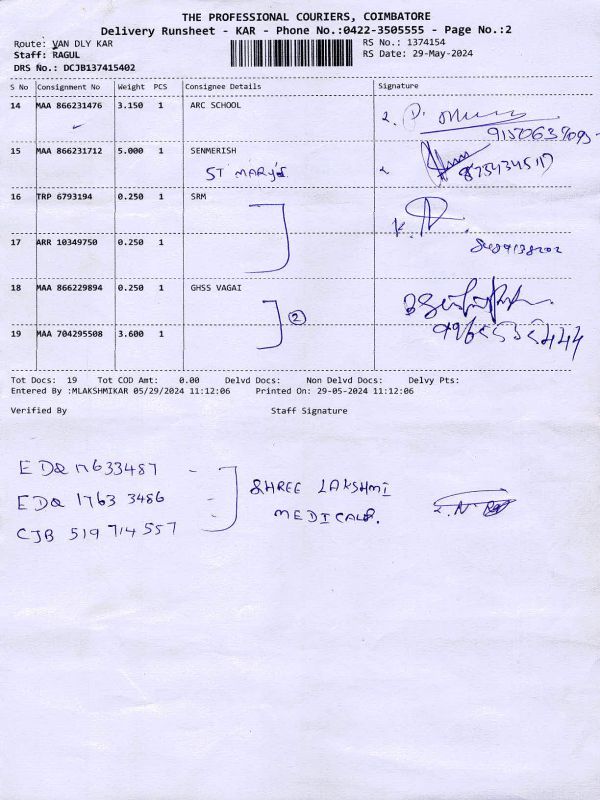 THE PROFESSIONAL COURIERS, COIMBATORE
Delivery Runsheet - KAR - Phone No.:0422-3505555 - Page No.:2
Route: VAN DLY KAR
RS No.: 1374154
Staff: RAGUL
RS Date: 29-May-2024
DRS No.: DCJB137415402
S No Consignment No Weight PCS Consignee Details Signature
14 MAA 866231476 3.150 1 ARC SCHOOL
15 MAA 866231712 5.000 1 SENMERISH
ST MARY'S
16 TRP 6793194 0.250 1 SRM
17 ARR 10349750 0.250 1
18 MAA 866229894 0.250 1 GHSS VAGAI
2
19 MAA 704295508 3.600 1
Tot Docs: 19 Tot COD Amt: 0.00 Delvd Docs: Non Delvd Docs: Delvy Pts:
Entered By :MLAKSHMIKAR 05/29/2024 11:12:06 Printed On: 29-05-2024 11:12:06
Verified By Staff Signature
EDQ 17633487
EDQ 1763 3486
CJB 519 714 557
SHREE LAKSHMI
MEDICALS.